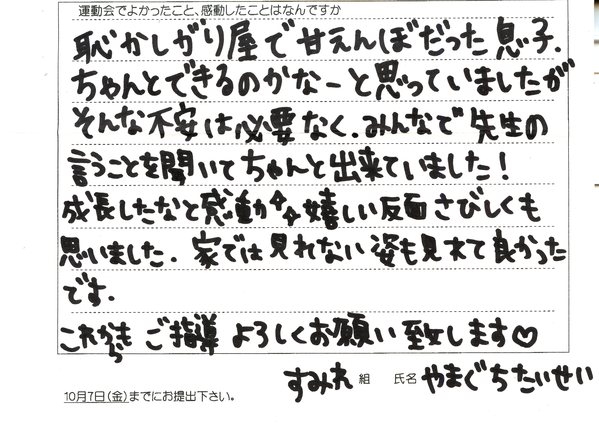 運動会でよかったこと、感動したことはなんですか
恥かしがり屋で甘えんぼだった息子.
ちゃんとできるのかなーと思っていましたが
そんな不安は必要なく.みんなで先生の
言うことを聞いてちゃんと出来ていました!
成長したなと感動✨嬉しい反面さびしくも
思いました.家では見れない姿も見れて良かった
です.
これからも ご指導 よろしくお願い致します♡
すみれ 組 氏名 やまぐちたいせい
10月7日(金)までにお提出下さい。